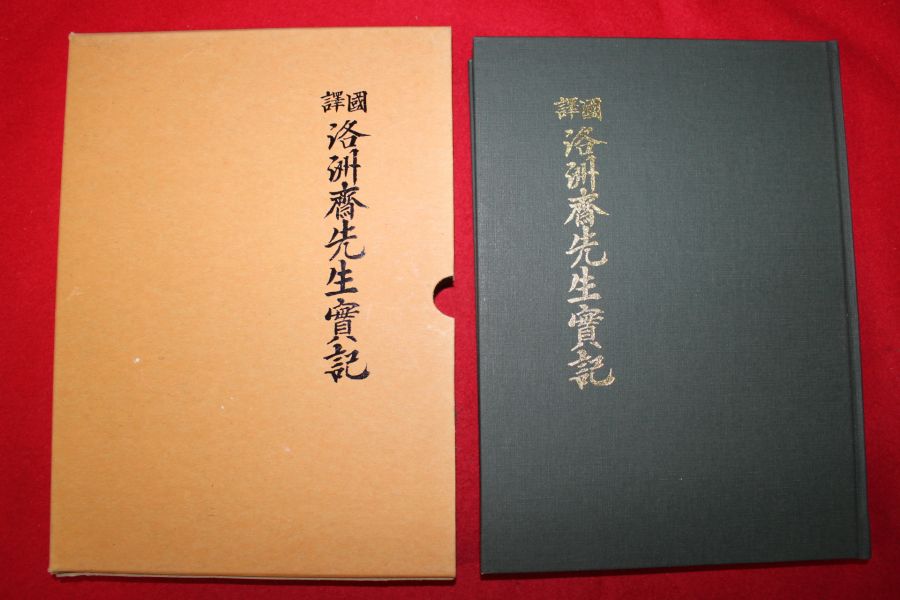 國譯
洛洲齋先生實記
國譯
洛洲齋先生實記